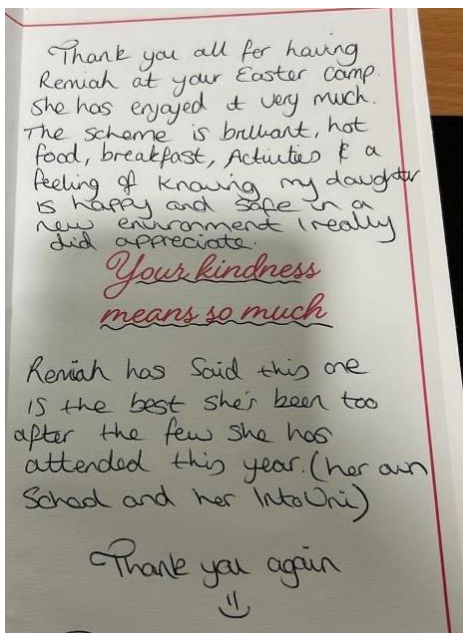 Thank you all for having
Reniah at your Easter camp.
She has enjoyed it very much.
The scheme is brilliant, hot
food, breakfast, Activities & a
feeling of knowing my daughter
is happy and safe in a
new environment I really
did appreciate.
Your kindness
means so much
Reniah has said this one
is the best she's been too
after the few she has
attended this year. (her own
School and her IntoUni)
Thank you again